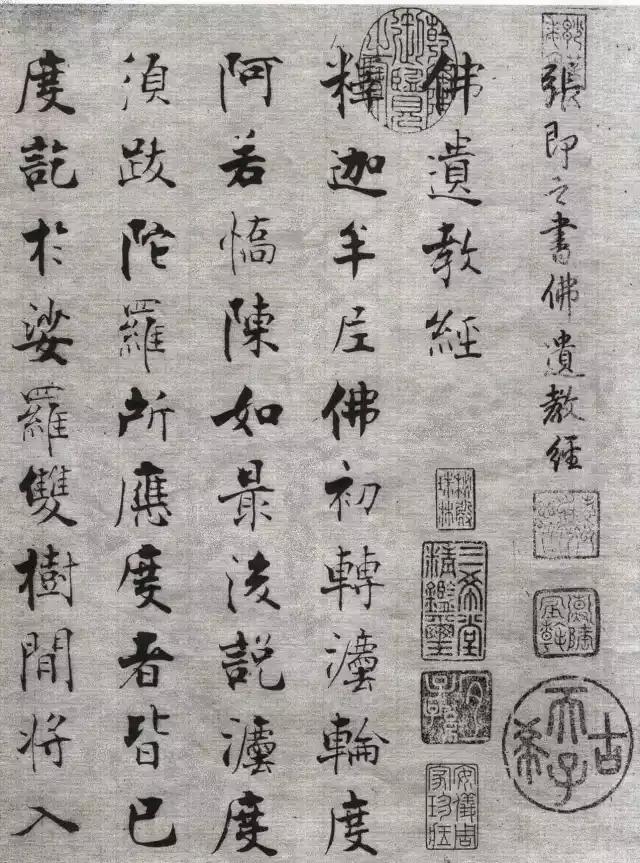 張即之書佛遺教經
佛遺教經
釋迦牟尼佛初轉灋輪度
阿若憍陳如最後說灋度
須跋陀羅所應度者皆已
度訖於娑羅雙樹間將入
乾隆御覽之寶
三希堂精鑑璽
宜子孫
安儀周家珍藏
古希天子